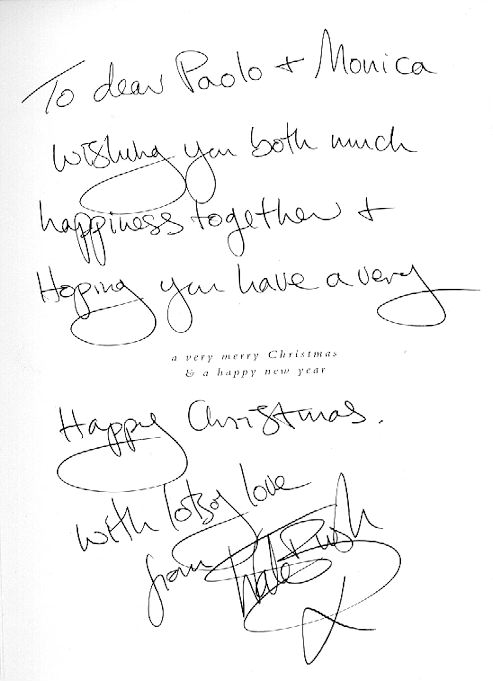 To dear Paolo + Monica
Wishing you both much
happiness together +
Hoping you have a very
a very merry Christmas
& a happy new year
Happy Christmas.
with lots of love
from Kate Bush
X